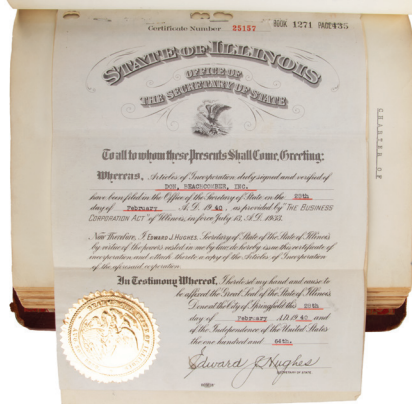 Certificate Number 25157 BOOK 1271 PAGE 435
STATE OF ILLINOIS
OFFICE OF
THE SECRETARY OF STATE
To all to whom these Presents Shall Come, Greeting:
Whereas, Articles of Incorporation duly signed and verified of
DON, BEACHCOMBER, INC.
have been filed in the Office of the Secretary of State on the 28th
day of February A.D. 1940, as provided by "THE BUSINESS
CORPORATION ACT" of Illinois, in force July 13, A.D. 1933.
Now Therefore, I EDWARD J. HUGHES, Secretary of State of the State of Illinois
by virtue of the powers vested in me by law do hereby issue this certificate of
incorporation and attach thereto a copy of the Articles of Incorporation
of the aforesaid corporation.
In Testimony Whereof, I hereto set my hand and cause to
be affixed the Great Seal of the State of Illinois
Done at the City of Springfield this 28th
day of February A.D. 1940 and
of the Independence of the United States
the one hundred and 64th.
Edward J Hughes
SECRETARY OF STATE
CHARTER OF